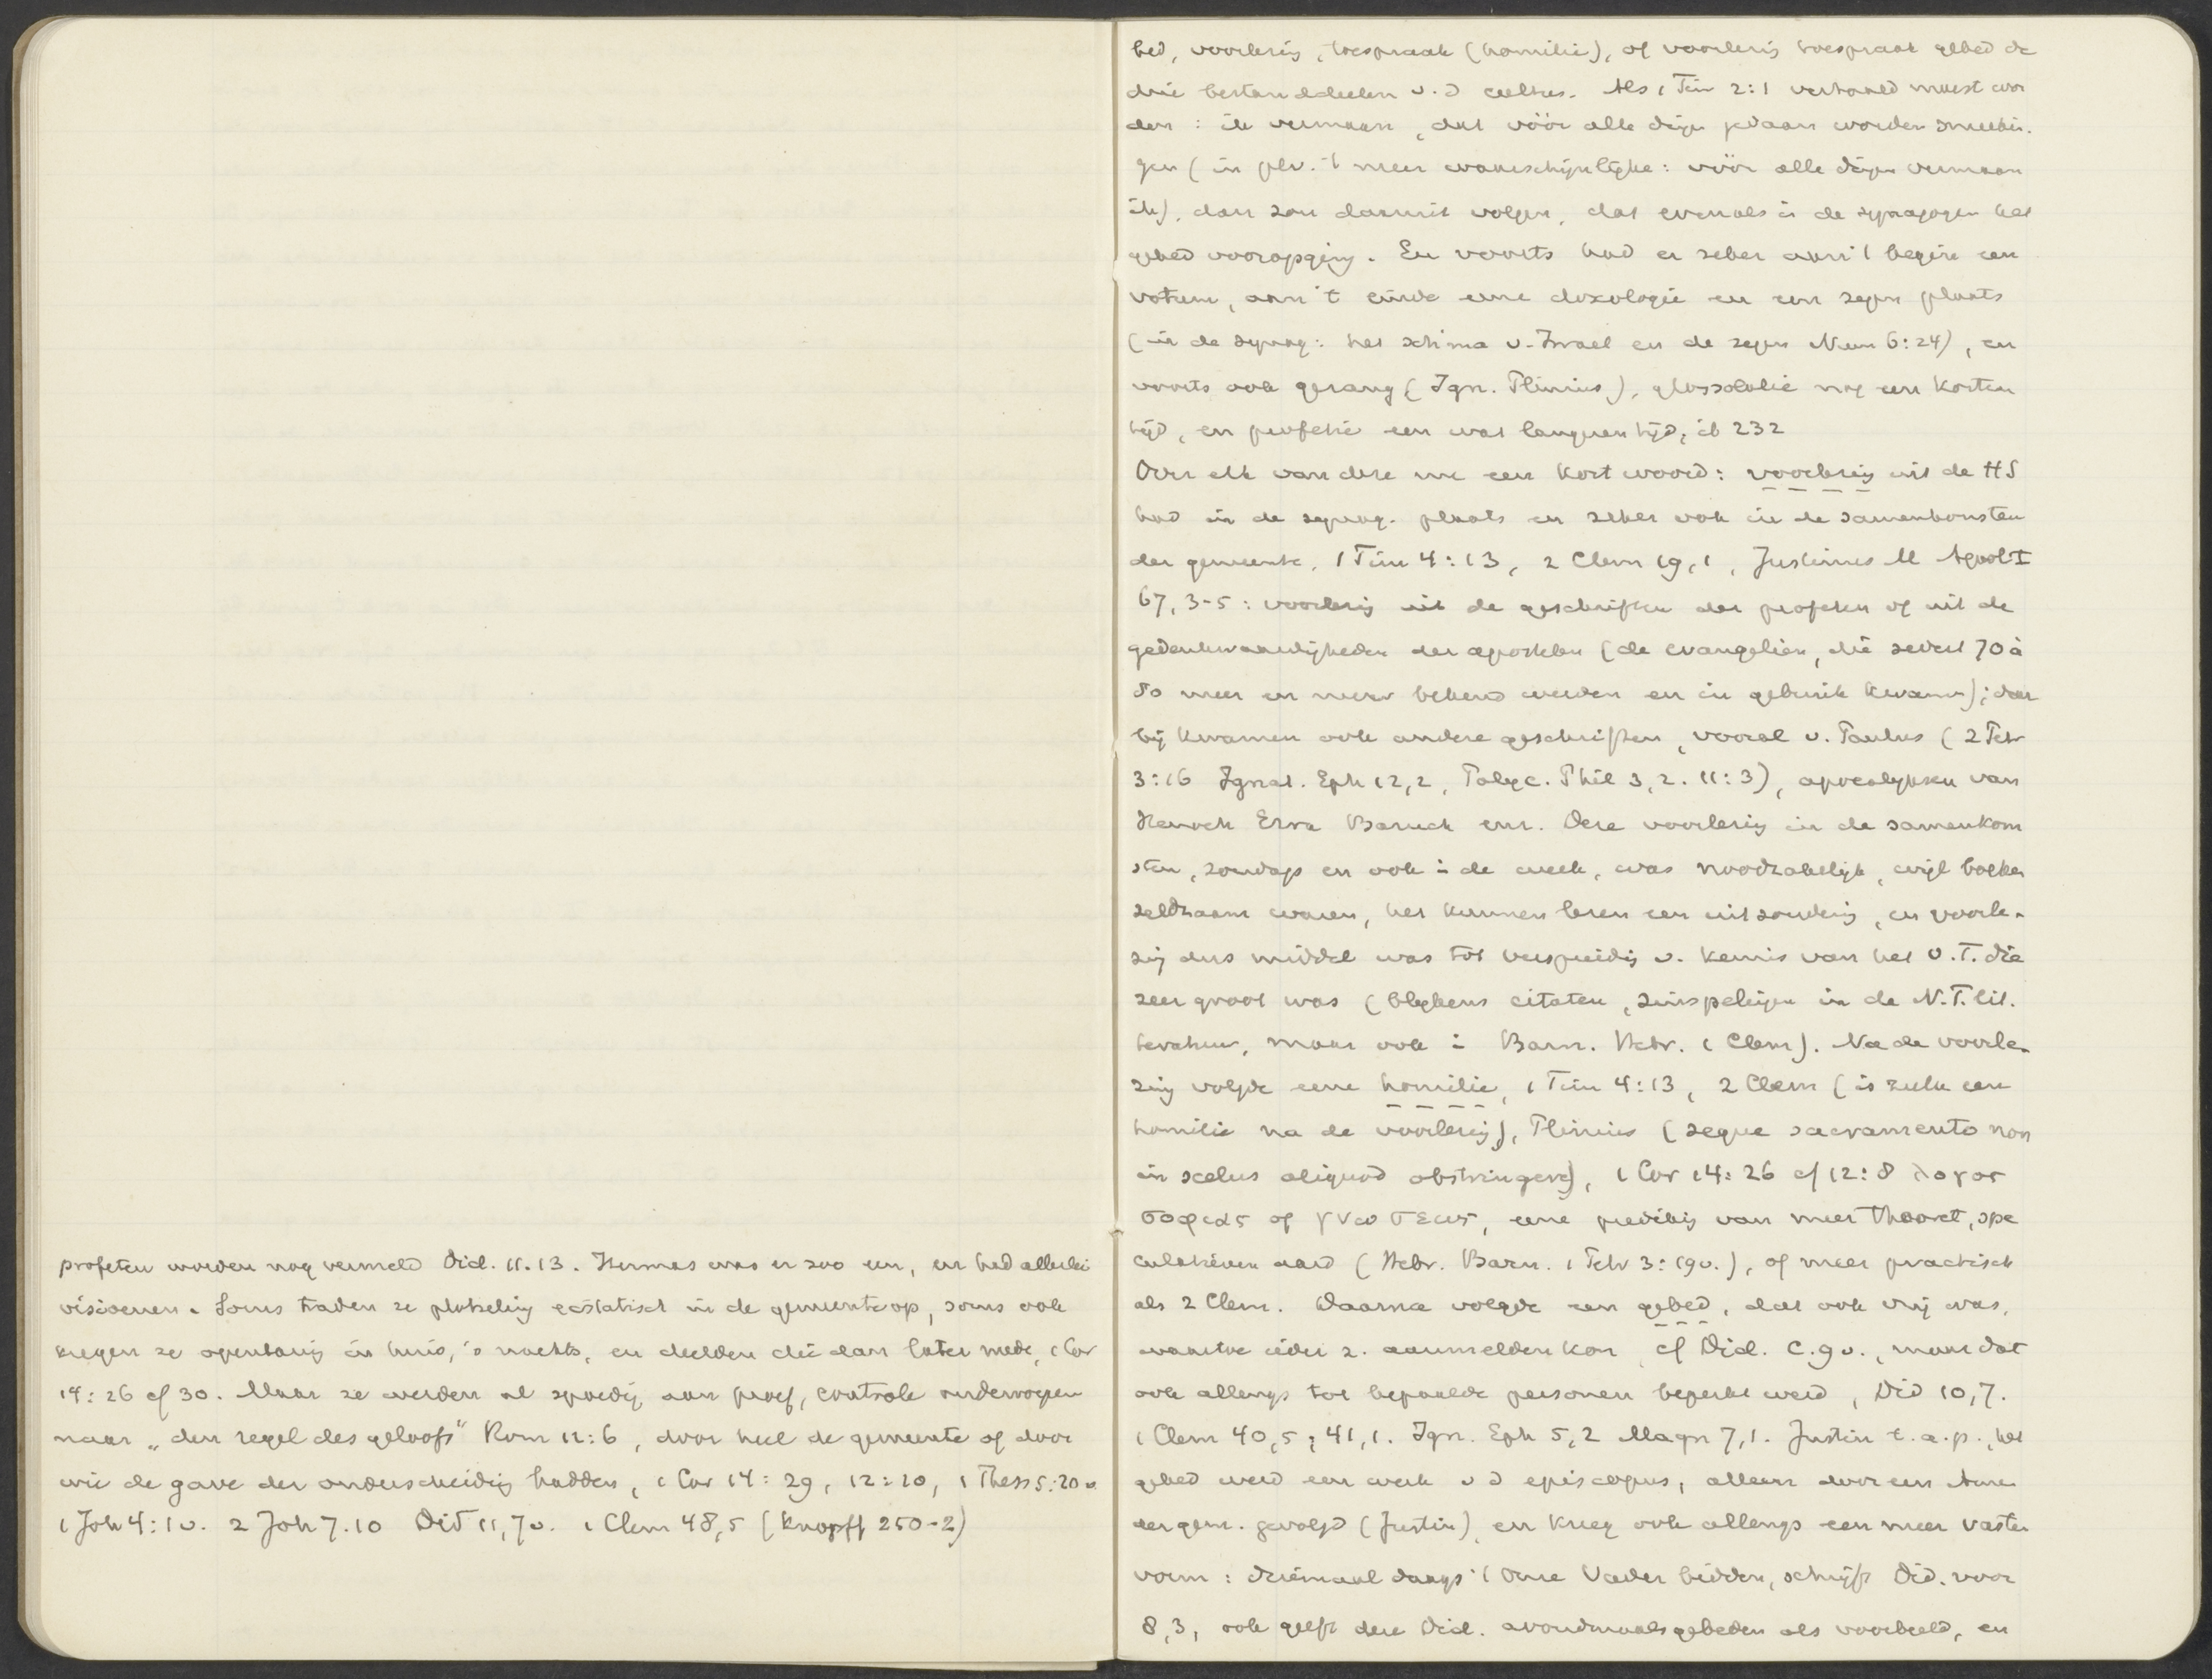 profeten worden nog vermeld Did. 11.13. Hermas was er zoo een, en had allerlei
visioenen. Soms traden ze plotseling ecstatisch in de gemeente op, soms ook
kregen ze openbaring in huis, 's nachts, en deelden die dan later mede, 1 Cor
14:26 cf 30. Maar ze werden al spoedig aan proef, controle onderworpen
naar „den regel des geloofs" Rom 12:6, door heel de gemeente of door
wie de gave der onderscheiding hadden, 1 Cor 14:29, 12:10, 1 Thess 5:20v
1 Joh 4:1v. 2 Joh 7.10 Did 11,7v. 1 Clem 48,5 (Knopff 250-2)
bed, voorlezing, toespraak (homilie), of voorlezing toespraak gebed de
drie bestanddeelen v.d cultus. Als 1 Tim 2:1 vertaald moest wor
den: ik vermaan, dat vóór alle dingen gedaan worden smeekin.
gen (in plv. 't meer waarschijnlijke: vóór alle dingen vermaan
ik), dan zou daaruit volgen, dat evenals in de synagogen het
gebed vooropging. En voorts had er zeker aan 't begin een
votum, aan 't einde eene doxologie en een zegen plaats
(in de synag: het schma v. Israel en de zegen Num 6:24), en
voorts ook gezang (Ign. Plinius), glossolalie nog een korten
tijd, en profetie een wat langeren tijd, ib 232
Over elk van deze nu een kort woord: voorlezing uit de HS
had in de synag. plaats en zeker ook in de samenkomsten
der gemeente, 1 Tim 4:13, 2 Clem 19,1, Justinus M Apol I
67, 3-5: voorlezing uit de geschriften der profeten of uit de
gedenkwaardigheden der apostelen (de evangelien, die sedert 70 à
80 meer en meer bekend werden en in gebruik kwamen); daar
bij kwamen ook andere geschriften, vooral v. Paulus (2 Petr
3:16 Ignat. Eph 12,2, Polyc. Phil 3,2. 11:3), apocalypsen van
Henoch Ezra Baruch enz. Deze voorlezing in de samenkom
sten, zondags en ook in de week, was noodzakelijk, wijl boeken
zeldzaam waren, het kunnen lezen een uitzondering, en voorle-
zing dus middel was tot verspreiding v. kennis van het O.T. die
zeer groot was (blijkens citaten, zinspelingen in de N.T. lit.
teratuur, maar ook in Barn. Hebr. 1 Clem). Na de voorle-
zing volgde eene homilie, 1 Tim 4:13, 2 Clem (is zulk een
homilie na de voorlezing), Plinius (seque sacramento non
in scelus aliquod obstringere), 1 Cor 14:26 cf 12:8 λογος
σοφιας of γνωσεως, eene prediking van meer theoret, spe
culatieven aard (Hebr. Barn. 1 Petr 3:19v.), of meer practisch
als 2 Clem. Daarna volgde een gebed, dat ook vrij was,
waartoe ieder z. aanmelden kon, cf Did. C.9v., maar dat
ook allengs tot bepaalde personen beperkt werd, Did 10,7.
1 Clem 40,5; 41,1. Ign. Eph 5,2 Magn 7,1. Justin t.a.p., het
gebed werd een werk v d episcopus, alleen door een Amen
der gem. gevolgd (Justin), en kreeg ook allengs een meer vasten
vorm: driemaal daags 't Onze Vader bidden, schrijft Did. voor
8,3, ook geeft deze Did. avondmaalsgebeden als voorbeeld, en